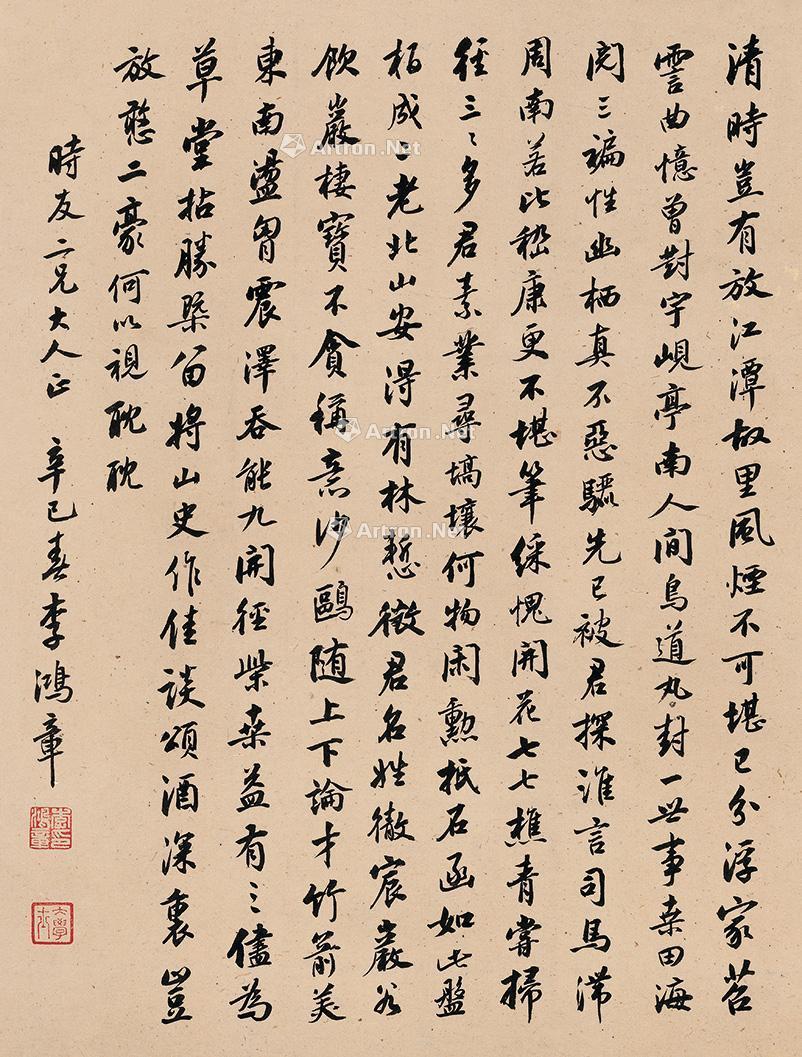 清時豈有放江潭故里風煙不可堪已分浮家苕
霅曲憶曾對宇峴亭南人間鳥道丸封一世事桑田海
閱三褊性幽栖真不惡驪先已被君探誰言司馬滯
周南若比嵇康更不堪筆綵愧開花七七樵青嘗掃
徑三三多君素業尋壖壤何物閑勳抵石函如此盤
栢成一老北山安得有林慙徵君名姓徹宸嚴谷
飲巖棲寶不貪稱意沙鷗隨上下論才竹箭美
東南盪胷震澤吞能九開徑柴桑益有三儘為
草堂拈勝槩留將山史作佳談頌酒深裏豈
放憨二豪何以視耽耽
時友二兄大人正 辛巳春李鴻章
Artron.Net
Artron.Net
Artron.Net